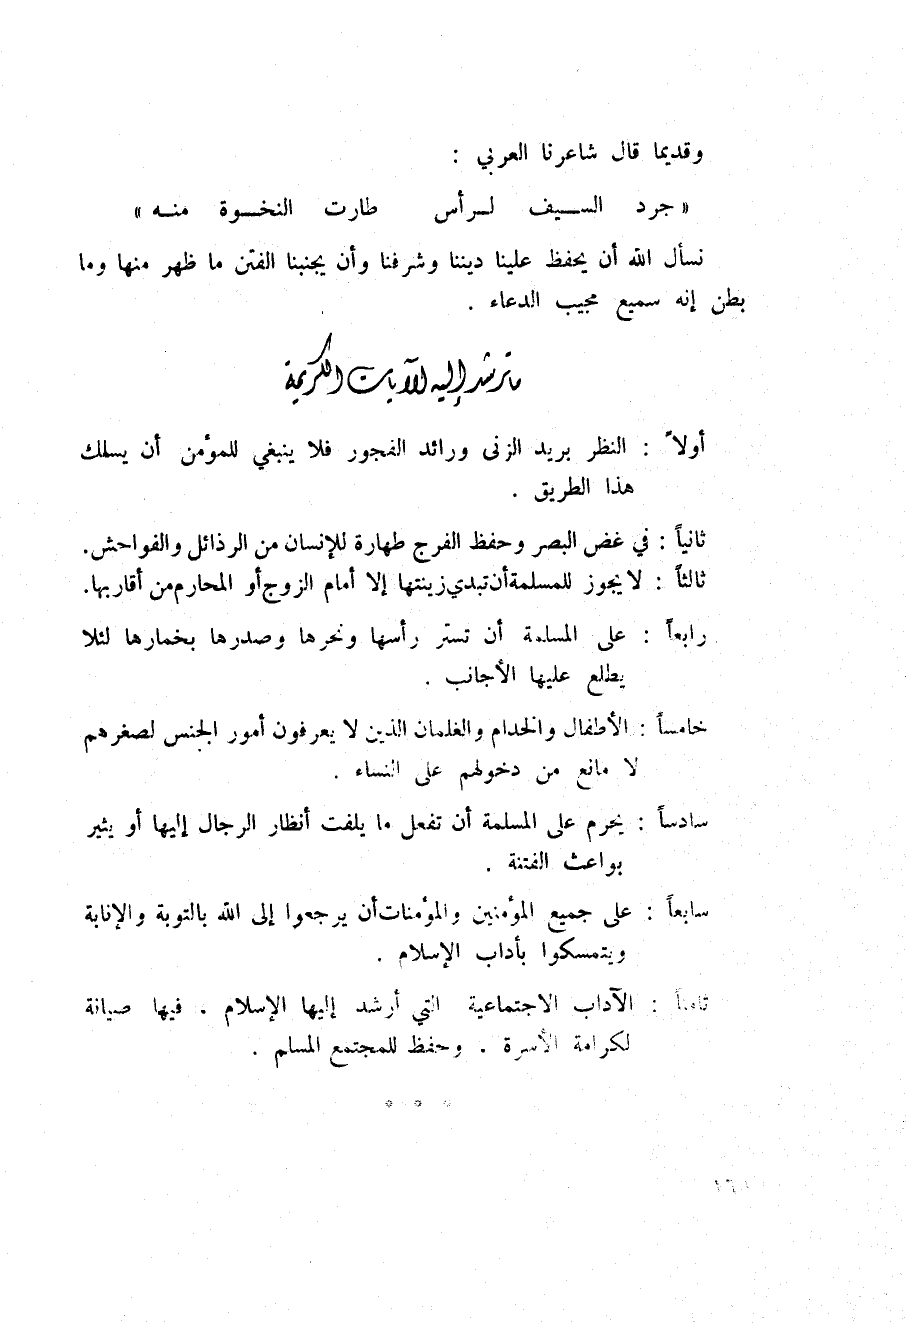 وقديما قال شاعرنا العربي :
« جرد الســيف لــرأس طارت النخــوة منــه »
نسأل الله أن يحفظ علينا ديننا وشرفنا وأن يجنبنا الفتن ما ظهر منها وما
بطن إنه سميع مجيب الدعاء .
ما ترشد إليه الآيات الكريمة
أولاً : النظر بريد الزنى ورائد الفجور فلا ينبغي للمؤمن أن يسلك
هذا الطريق .
ثانياً : في غض البصر وحفظ الفرج طهارة للإنسان من الرذائل والفواحش.
ثالثاً : لا يجوز للمسلمة أن تبدي زينتها إلا أمام الزوج أو المحارم من أقاربها.
رابعاً : على المسلمة أن تستر رأسها ونحرها وصدرها بخمارها لئلا
يطلع عليها الأجانب .
خامساً : الأطفال والخدام والغلمان الذين لا يعرفون أمور الجنس لصغرهم
لا مانع من دخولهم على النساء .
سادساً : يحرم على المسلمة أن تفعل ما يلفت أنظار الرجال إليها أو يثير
بواعث الفتنة .
سابعاً : على جميع المؤمنين والمؤمنات أن يرجعوا إلى الله بالتوبة والإنابة
ويتمسكوا بأداب الإسلام .
ثامناً : الآداب الاجتماعية التي أرشد إليها الإسلام . فيها صيانة
لكرامة الأسرة . وحفظ للمجتمع المسلم .
* * *